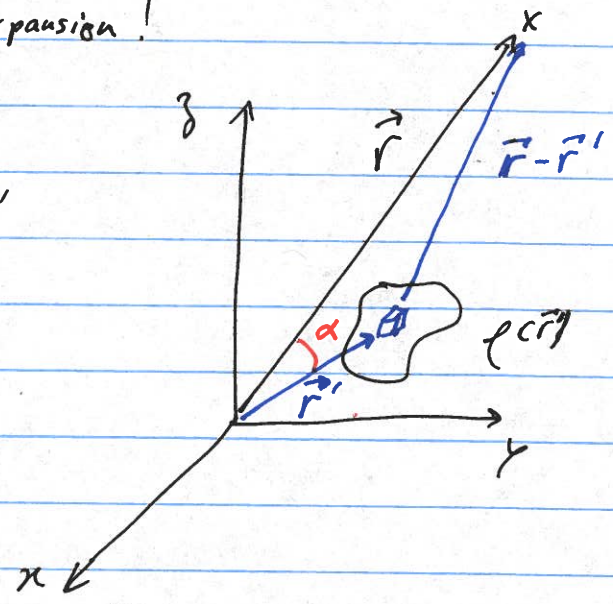 pansion !
x
z
r⃗
r⃗ - r⃗ '
α
ρ(r⃗')
r⃗ '
y
x